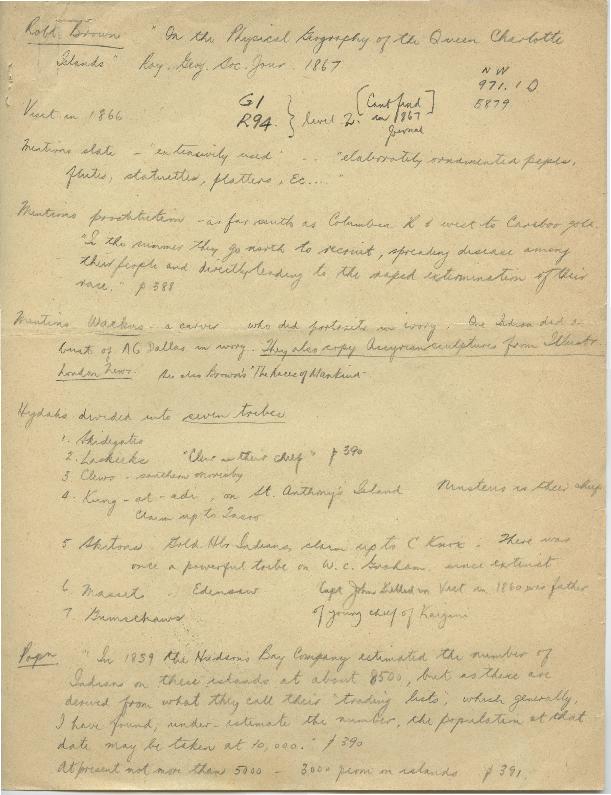 Robt. Brown "On the Physical Geography of the Queen Charlotte
Islands" Roy. Geog. Soc. Jour. 1867
NW
971.1D
B879
Visit in 1866
G1
R94. } level 2. [Cant find
in 1867
Journal]
Mentions slate - 'extensively used' ... "elaborately ornamented pipes,
flutes, statuettes, platters, &c...."
Mentions prostitution - as far south as Columbia R & west to Cariboo gold.
"In the summer they go north to recruit, spreading disease among
their people and directly tending to the rapid extermination of their
race." p 388
Mentions Waekus - a carver who did portraits in ivory. One Indian did a
bust of AG Dallas in ivory. They also copy Assyrian sculptures from Illustr.
London News. See also Brown's "The Races of Mankind"
Hydahs divided into seven tribes
1. Skidegates
2. Laskeeks "Clew is their chief" p 390
3. Clews - southern
4. Kung-at-adi, on St. Anthony's Island Ninsteris is their chief
Claim up to Tasso
5 Skitons Gold Hbr Indians, claim up to C Knox. There was
once a powerful tribe on W.C. Graham. since extinct
6 Masset . Edensaw Capt John killed on Vest in 1860 was father
7. Gumschaws of young chief of Kaigani
Popn. "In 1839 the Hudsons Bay Company estimated the number of
Indians on these islands at about 8500, but as these are
derived from what they call their 'trading lists', which generally,
I have found, under-estimate the number, the population at that
date may be taken at 10,000." p 390
At present not more than 5000 - 3000 on islands p 391.